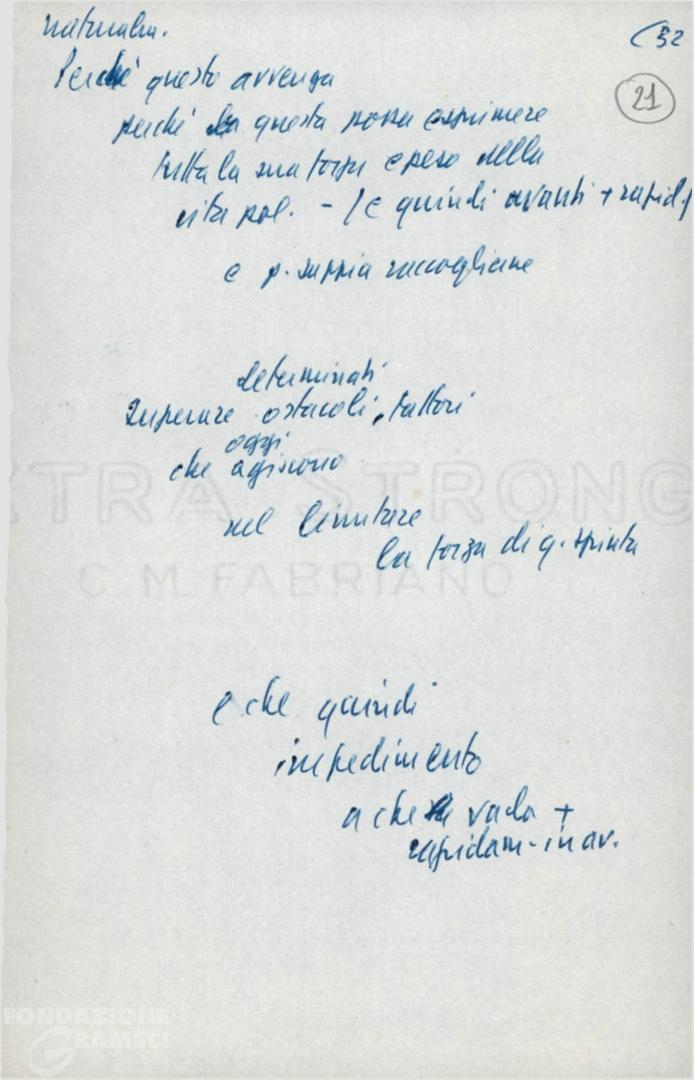 naturalm.
(32
21
Perché questo avvenga
perché questa possa esprimere
tutta la sua forza e peso nella
vita pol. - (e quindi avanti + rapid.)
e p. sappia raccogliere
determinati
superare ostacoli, fattori
oggi
che agiscono
nel limitare
la forza di q. spinta
e che quindi
impedimento
a che si vada +
rapidam. in av.
EXTRA STRONG
C. M. FABRIANO
FONDAZIONE
GRAMSCI